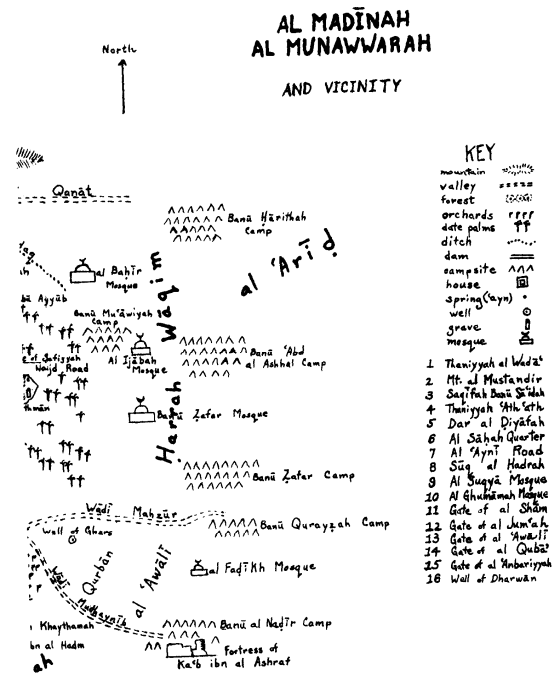 AL MADĪNAH
AL MUNAWWARAH
AND VICINITY
North
Qanāt
Banū Ḥārithah
Camp
al 'Arīḍ
al Baḥīr
Mosque
bū Ayyūb
Banū Mu'āwiyah
Camp
Al Ijābah
Mosque
Najd Road
thmān
Ḥarrah Wāqim
Banū 'Abd
al Ashhal Camp
Banū Ẓafar Mosque
Banū Ẓafar Camp
Wādī Mahzūr
Well of Ghars
Banū Qurayẓah Camp
Qurbān
al 'Awālī
Wādī
Mudhaynīb
al Faḍīkh Mosque
Khaythamah
bn al Hadm
ah
Banū al Naḍīr Camp
Fortress of
Ka'b ibn al Ashraf
KEY
mountain
valley
forest
orchards
date palms
ditch
dam
campsite
house
spring ('ayn)
well
grave
mosque
1 Thaniyyah al Wadā'
2 Mt. al Mustandir
3 Saqīfah Banū Sā'idah
4 Thaniyyah 'Ath'ath
5 Dar al Ḍiyāfah
6 Al Sāḥah Quarter
7 Al 'Aynī Road
8 Sūq al Hadrah
9 Al Suqyā Mosque
10 Al Ghumāmah Mosque
11 Gate of al Shām
12 Gate of al Jum'ah
13 Gate of al 'Awālī
14 Gate of al Qubā'
15 Gate of al 'Anbariyyah
16 Well of Dharwān